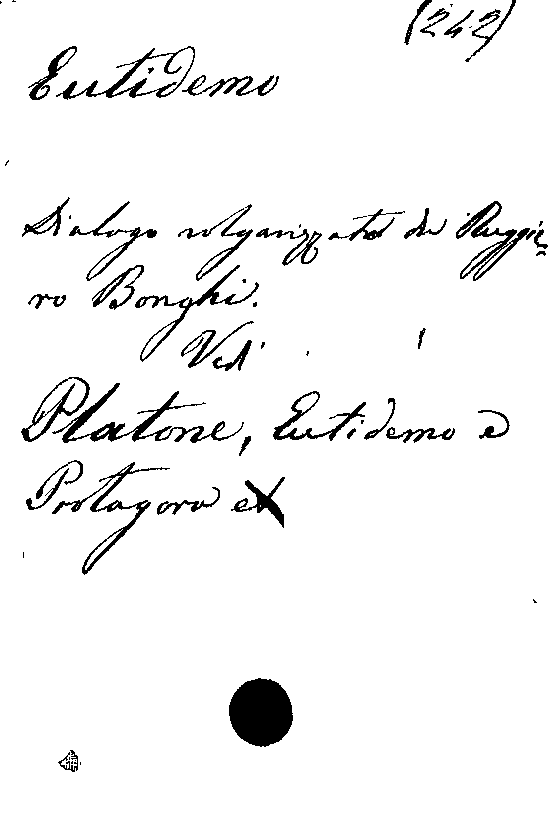 (242)
Eutidemo
Dialogo volgarizzato da Ruggie=
ro Bonghi.
Vedi
Platone, Eutidemo e
Protagora